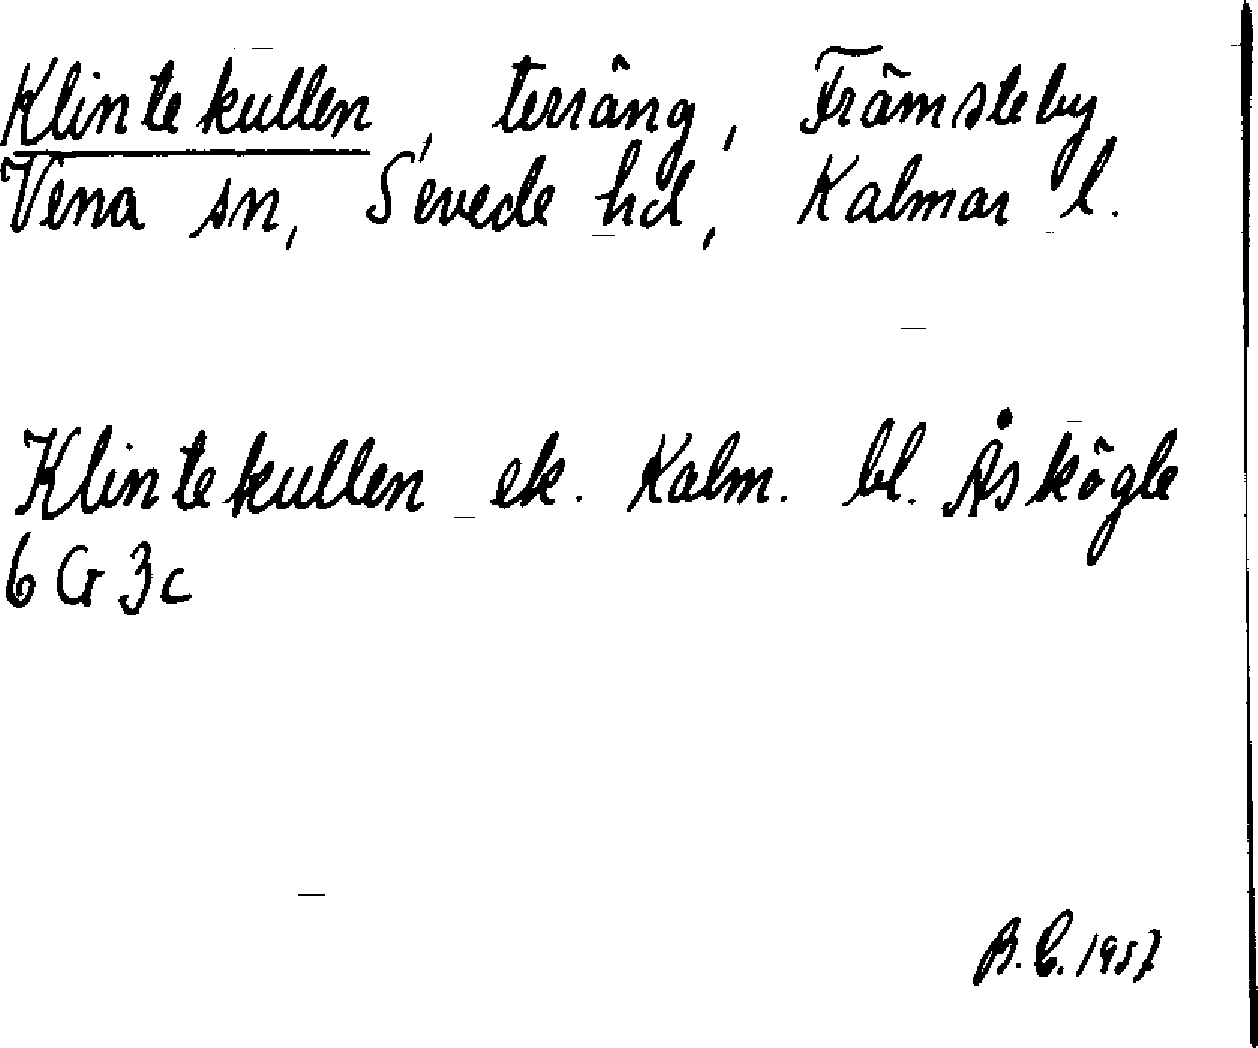 Klintekullen, terräng, Främsteby
Vena sn, Sevede hd, Kalmar l.
Klintekullen ek. Kalm. bl. Åskögle
6 G 3c
B. E. 1957